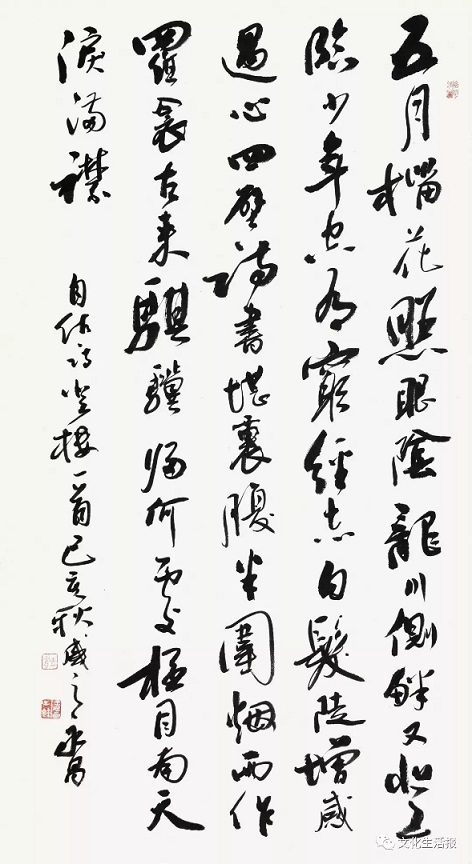 五月榴花照眼陰龍川側畔又登
臨少年空有窮經志白髮陡增感
遇心四壁詩書堪裹腹半圍烟雨作
羅衾古來騏驥歸何處極目南天
淚滿襟
自作詩登樓一首己亥秋
文化生活报